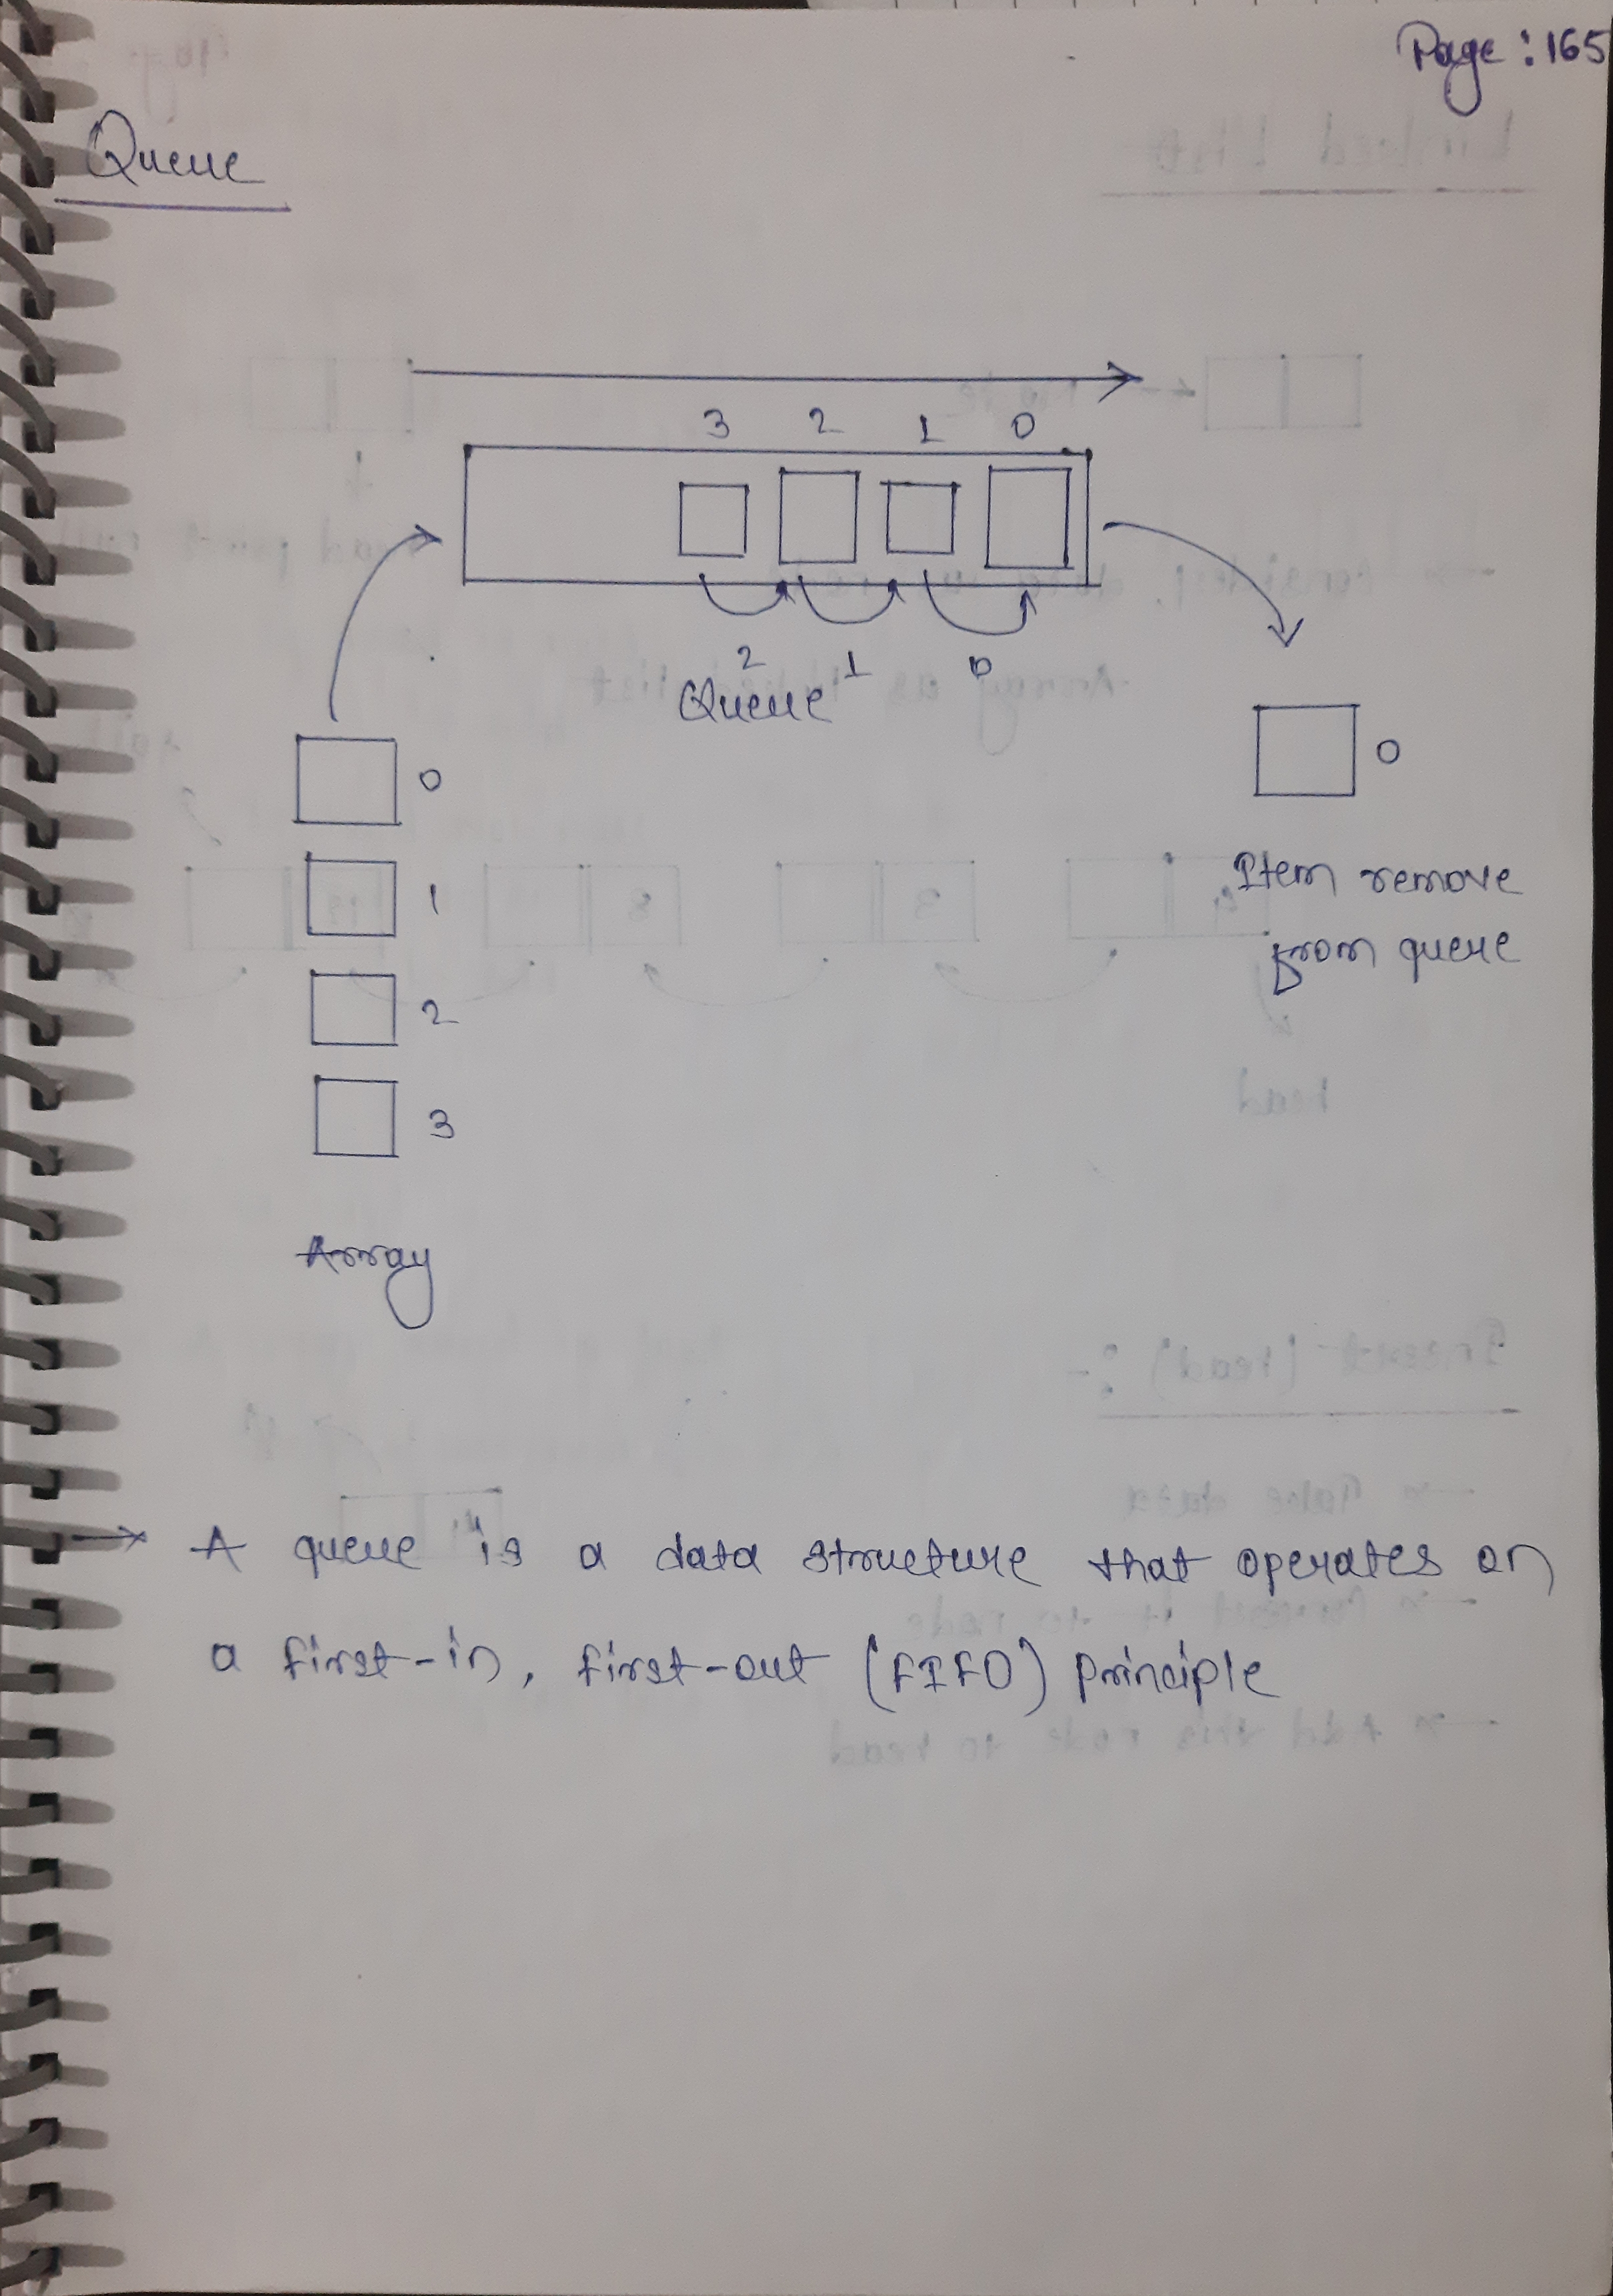 Page: 165
Queue
3 2 1 0
2 1 0
Queue
0
0
1
2
3
Item remove
from queue
Array
→ A queue is a data structure that operates on
a first-in, first-out (FIFO) principle